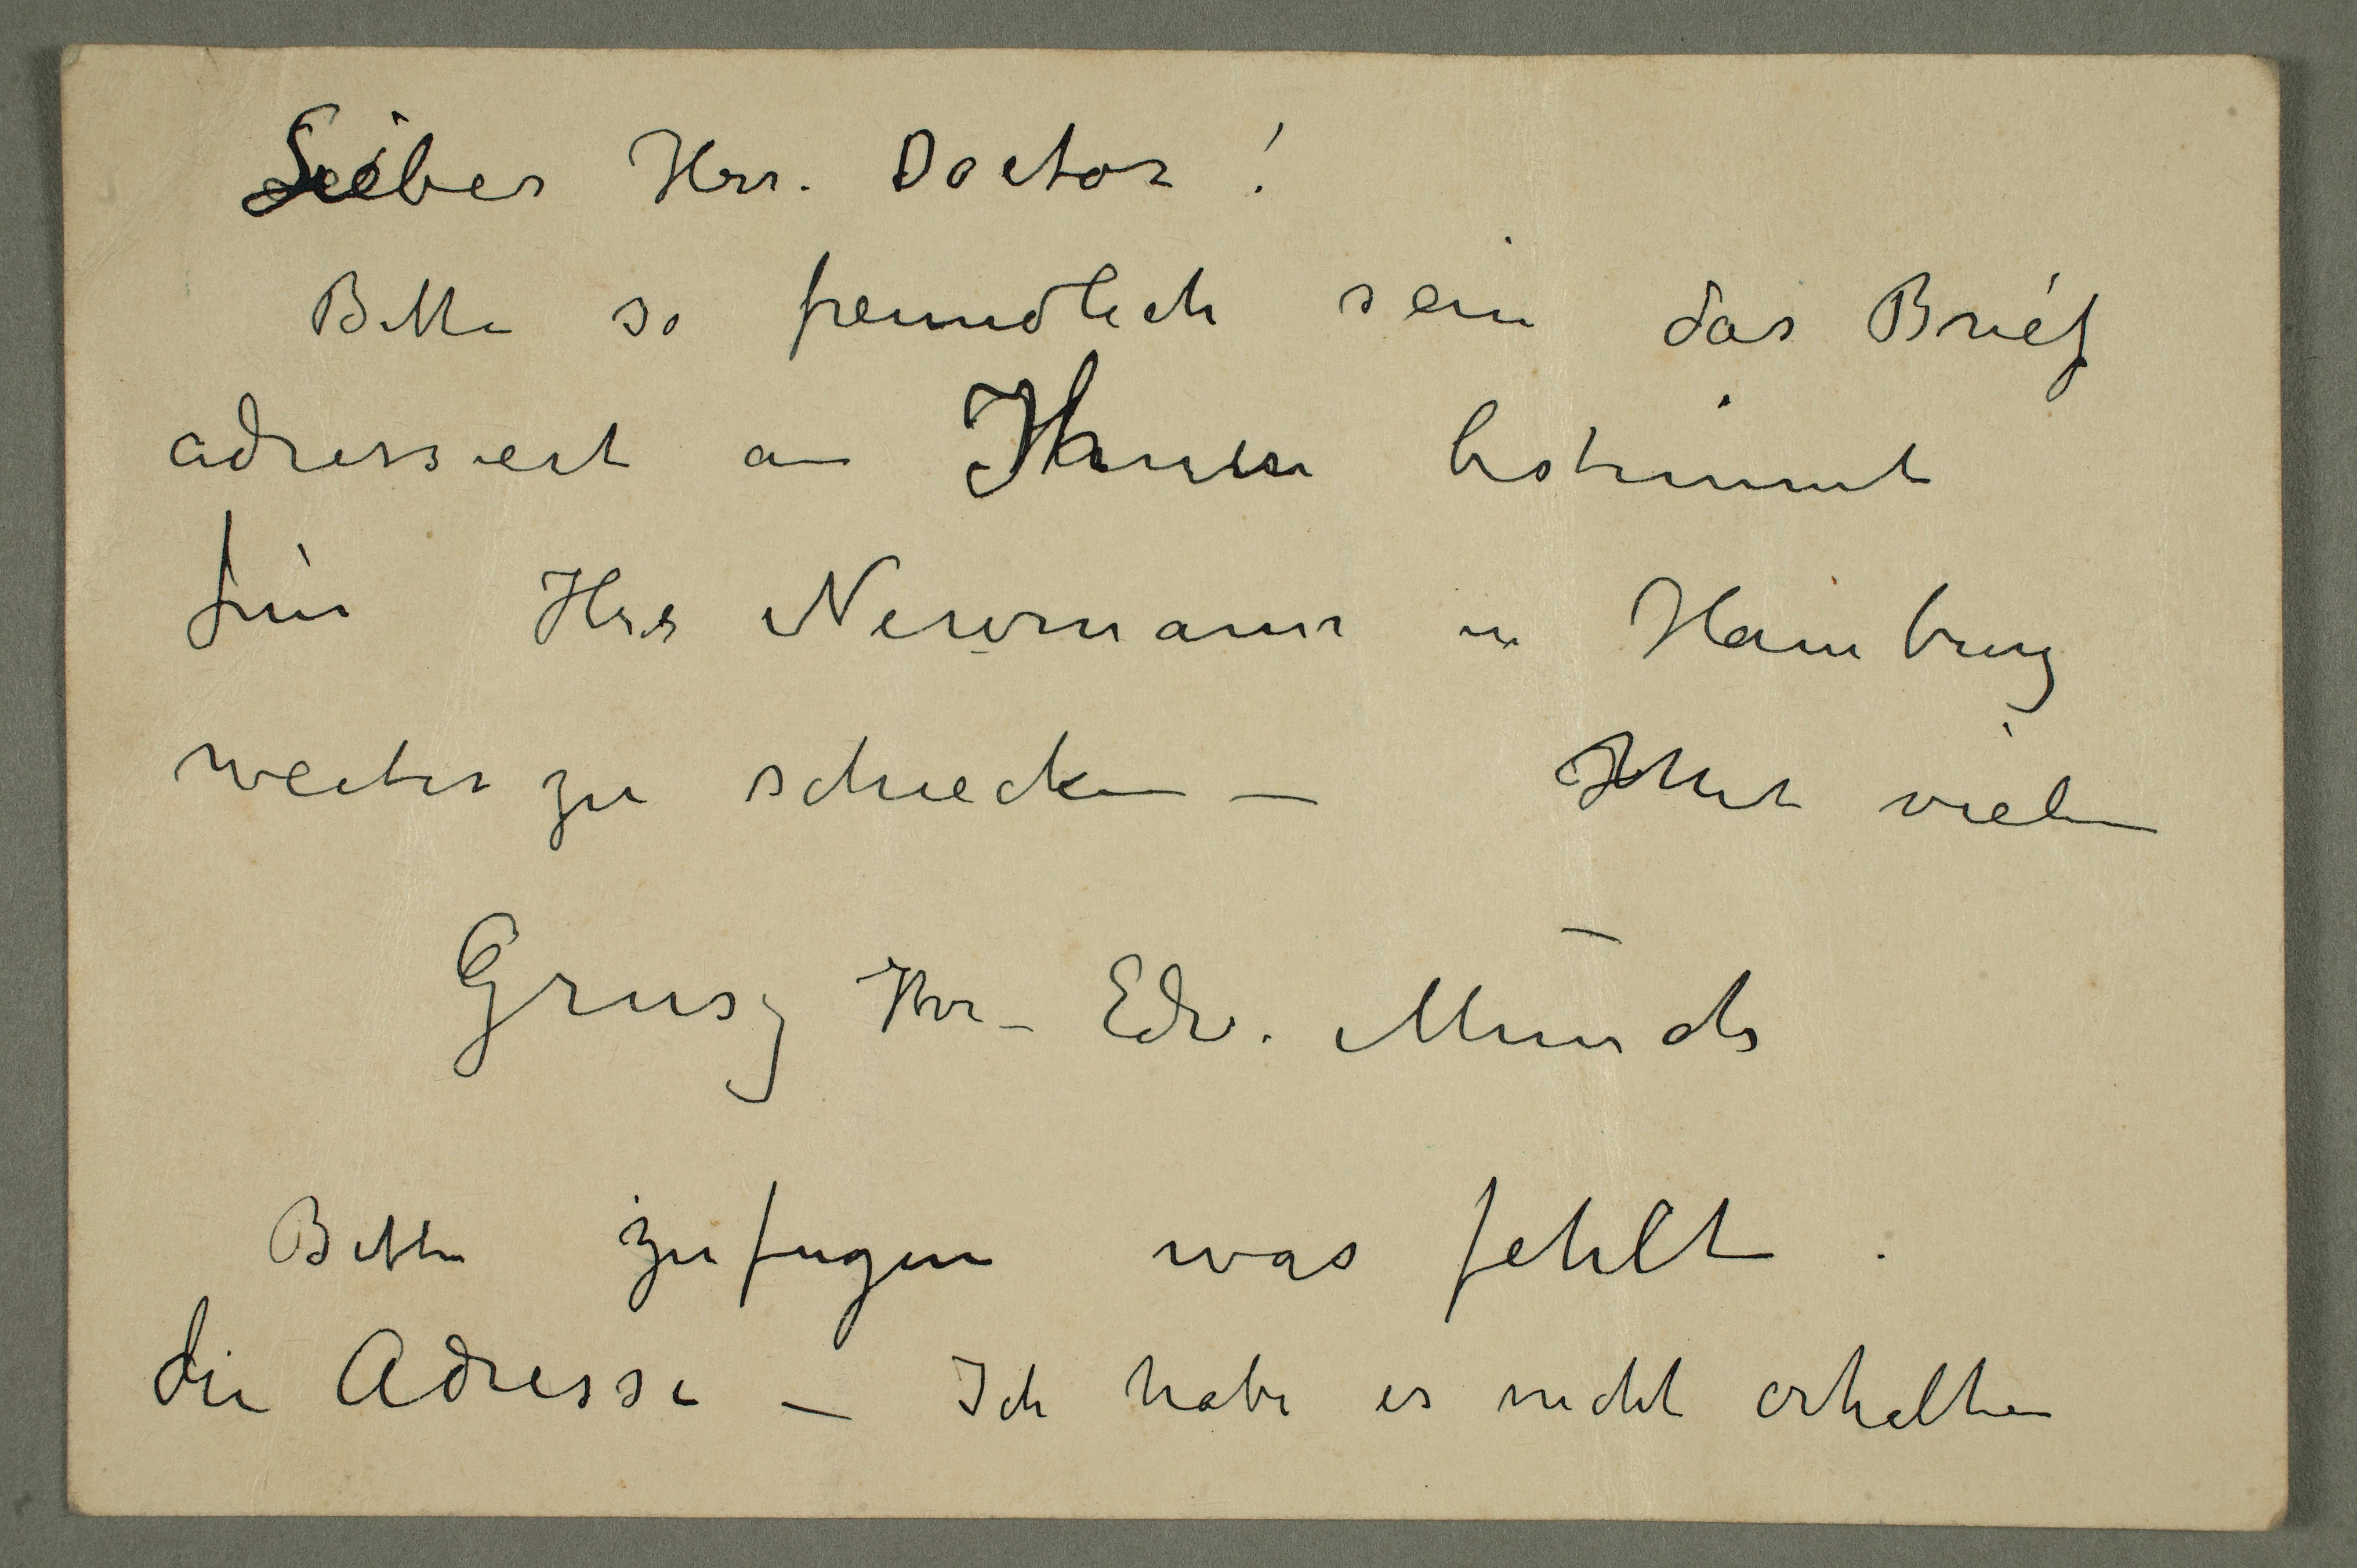 Lieber Hrr. Doctor!
Bitte so freundlich sein das Brief
adressiert an Ihnen bestimmt
für Hrr Newmann in Hamburg
weiter zu schicken — Mit vielen
Grusz Ihr – Edv. Munch
Bitte zufugen was fehlt.
die Adresse — Ich habe es nicht erhalten